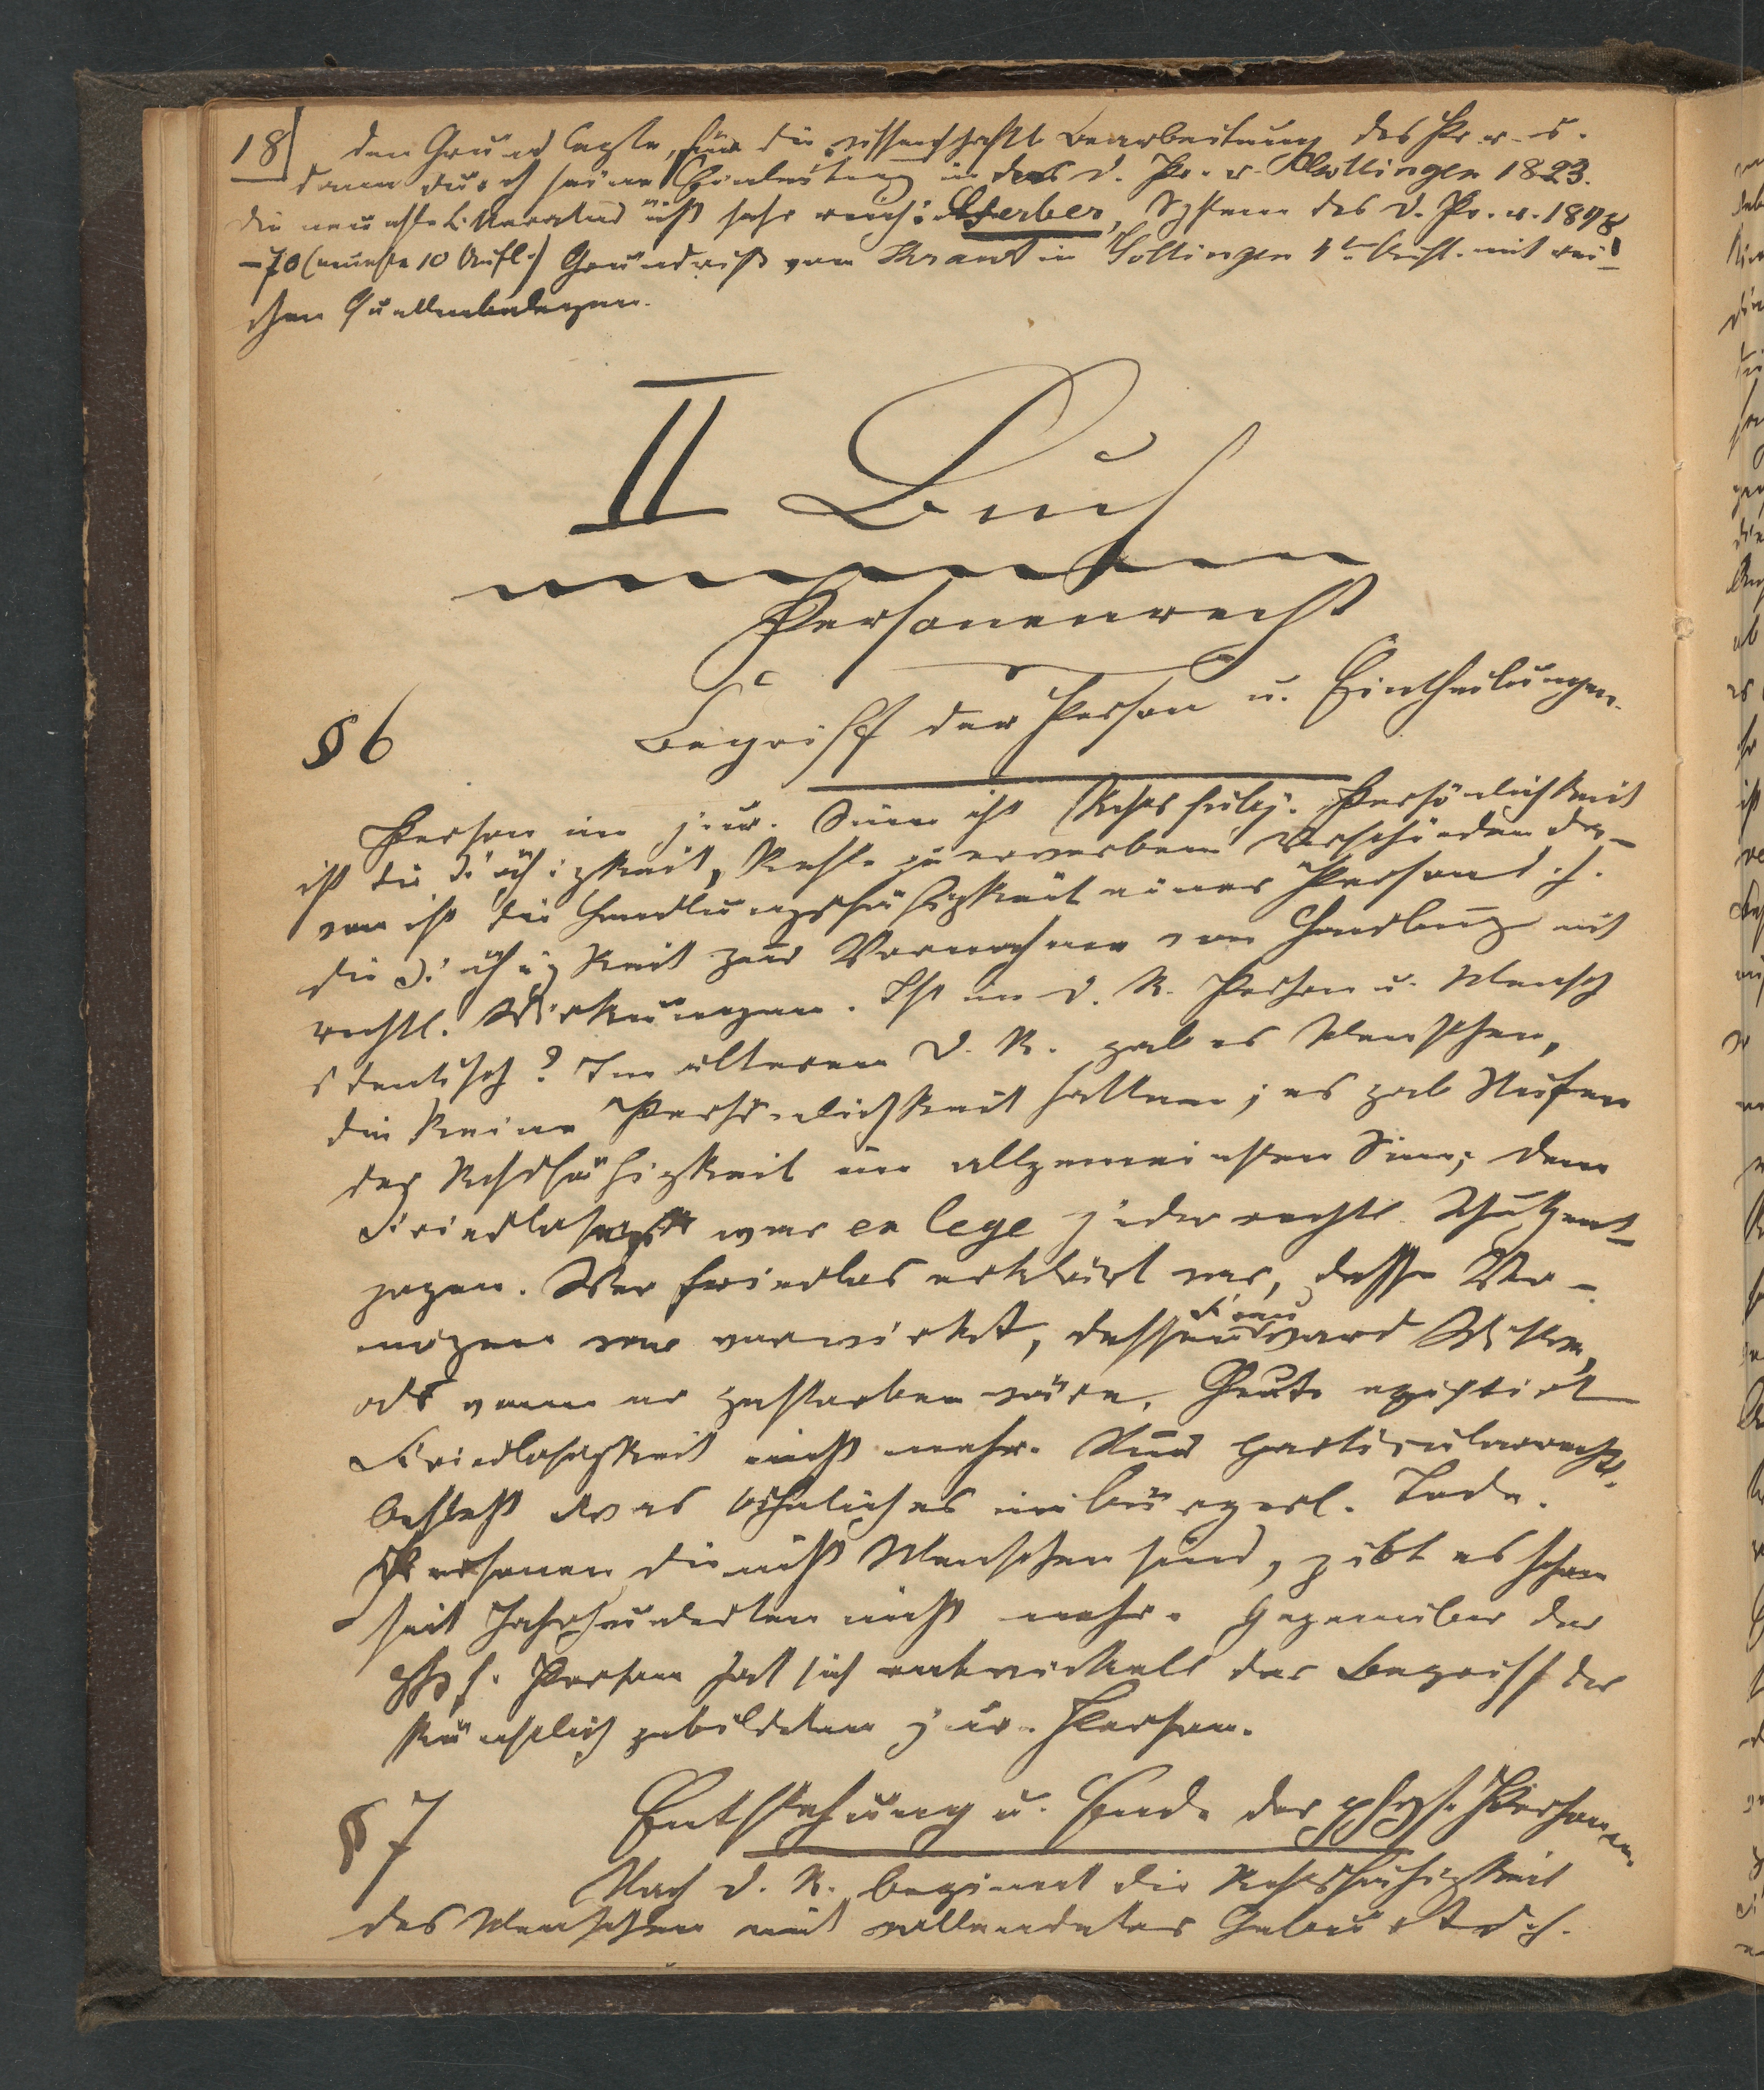 18 den Grund legte, für die wissenschaftl. Bearbeitung des Pr. r. s.
dann durch seine Einleitung in das d. Pr. r. Göttingen 1823.
die neueste Litteratur ist sehr reich: Gerber, System des d. Pr. r. 1848
–70 (neueste 10 Aufl.) Grundriß von Kraut in Göttingen 4te Aufl. mit rei-
chen Quellenbelegen.
II Buch
Personenrecht
§ 6 Begriff der Person u. Eintheilungen.
Person im jur. Sinn ist Rchtssubj. Persönlichkeit
ist die Fähigkeit, Rechte zu erwerben. Verschieden da-
von ist die Handlungsfähigkeit einer Person d. h.
die Fähigkeit zur Vornahme von Handlung mit
rechtl. Wirkungen. Ist im d. R. Person u. Mensch
identisch? Im älteren d. R. gab es Menschen,
die keine Persönlichkeit hatten; es gab Stufen
der Rchtsfähigkeit im allgemeinsten Sinn; dem
Friedlosen war ex lege jeder rechtl. Schutz ent-
zogen. Wer friedlos erklärt war, dessen Ver-
mögen war verwirkt, dessen Frau ward Wittwe,
als wenn er gestorben wäre. Heute existirt
Friedlosigkeit nicht mehr. Nur particularrechtl.
besteht etwas Ähnliches im bürgerl. Tode.
Personen die nicht Menschen sind, gibt es schon
seit Jahrhunderten nicht mehr. Gegenüber der
phys. Person hat sich entwickelt der Begriff der
künstlich gebildeten jur. Person.
§ 7 Entstehung u. Ende der phys. Personen.
Nach d. R. beginnt die Rchtsfähigkeit
des Menschen mit vollendeter Geburt d. h.